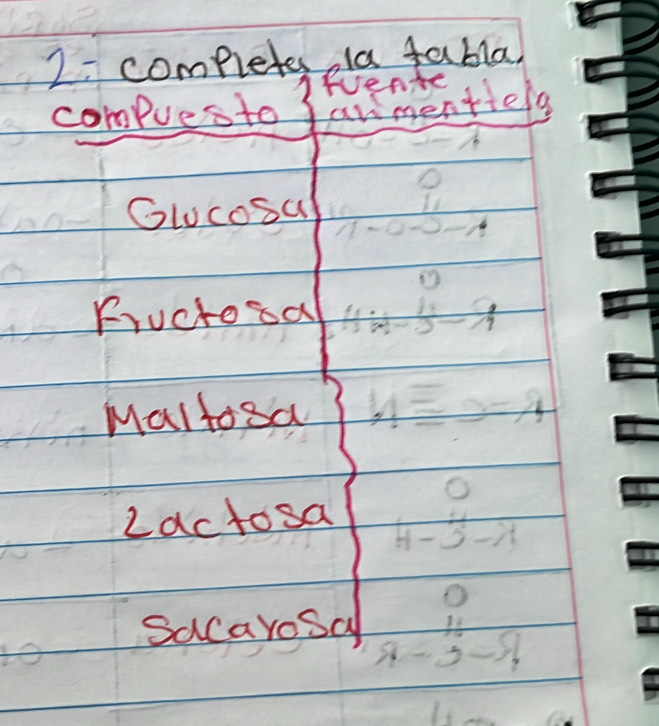 2- completa la tabla.
compuesto fuente alimenticia
Glucosa
Fructosa
Maltosa
Lactosa
Sacarosa